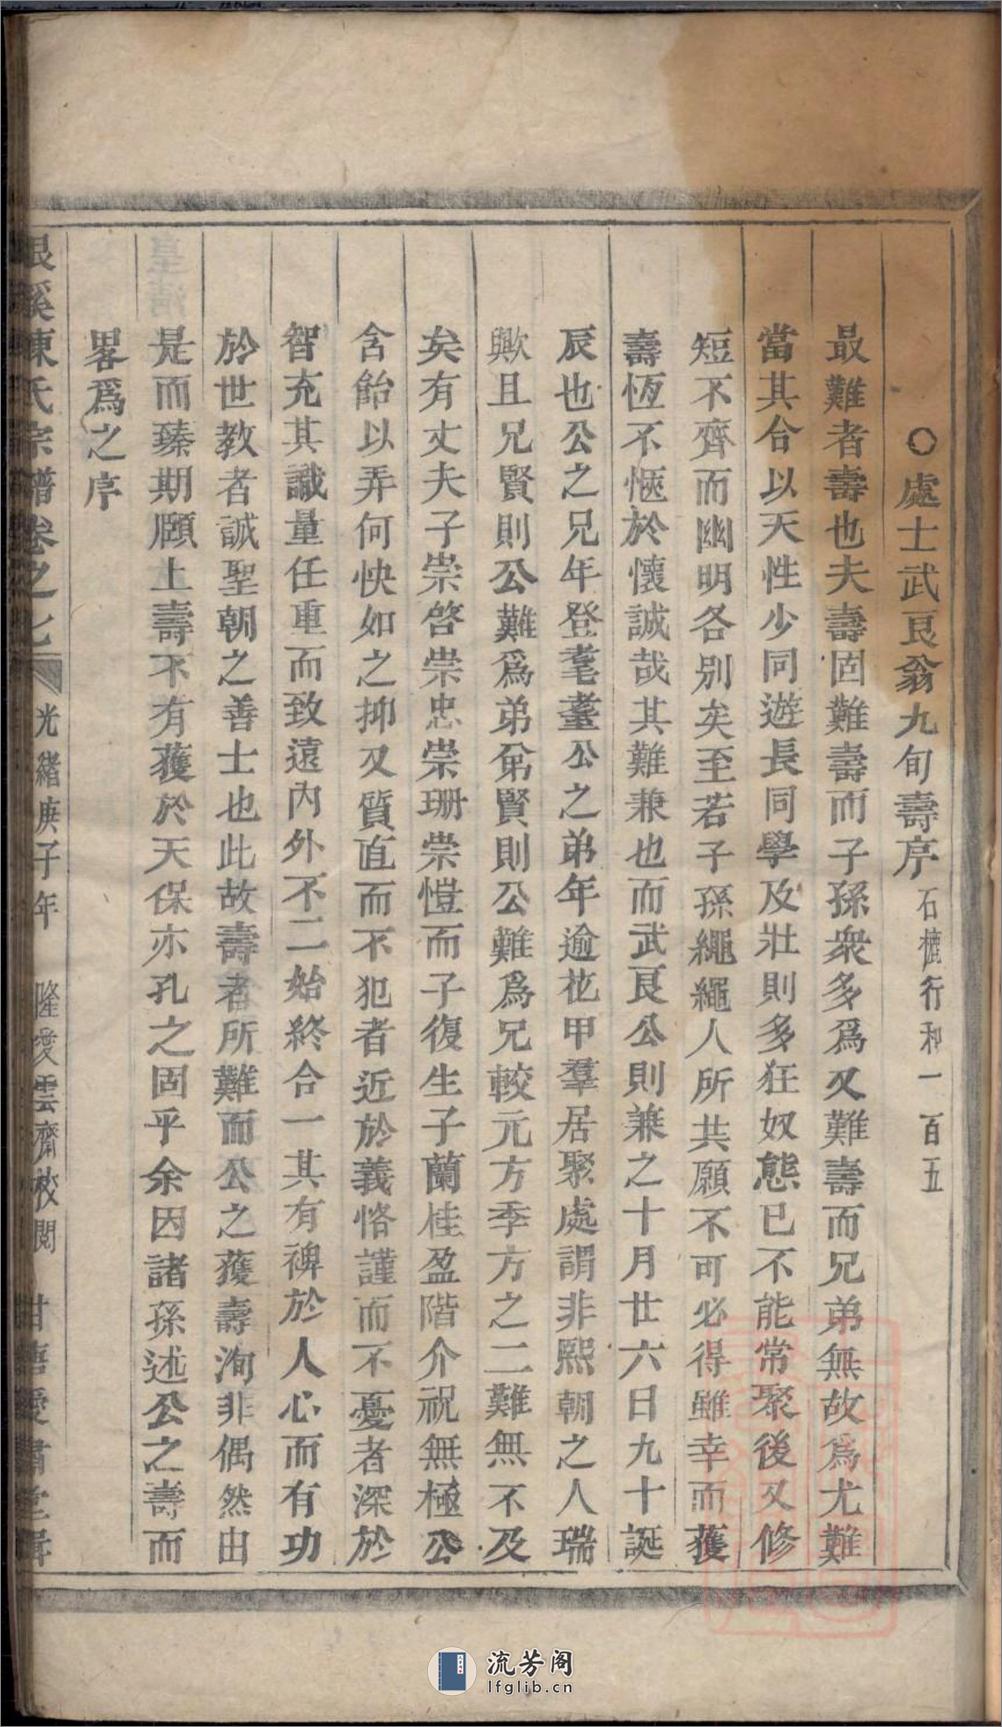 〇處士武艮翁九旬壽序 石橋行和一百五
最難者壽也夫壽固難壽而子孫衆多爲又難壽而兄弟無故爲尤難
當其合以天性少同遊長同學及壯則多狂奴態已不能常聚後又修
短不齊而幽明各别矣至若子孫繩繩人所共願不可必得雖幸而獲
壽恆不愜於懷誠哉其難兼也而武艮公則兼之十月廿六日九十誕
辰也公之兄年登耄耋公之弟年逾花甲羣居聚處謂非熙朝之人瑞
歟且兄賢則公難爲弟弟賢則公難爲兄較元方季方之二難無不及
矣有丈夫子崇啓崇忠崇珊崇愷而子復生子蘭桂盈階介祝無極公
含飴以弄何快如之抑又質直而不犯者近於義恪謹而不憂者深於
智充其識量任重而致遠內外不二始終合一其有裨於人心而有功
於世教者誠聖朝之善士也此故壽者所難而公之獲壽洵非偶然由
是而臻期頤上壽不有獲於天保亦孔之固乎余因諸孫述公之壽而
畧爲之序
溪陳氏宗譜卷之七 光緒庚子年 隆愛雲齋校閱 甘棠愛肅堂輯
流芳阁
lfglib.cn